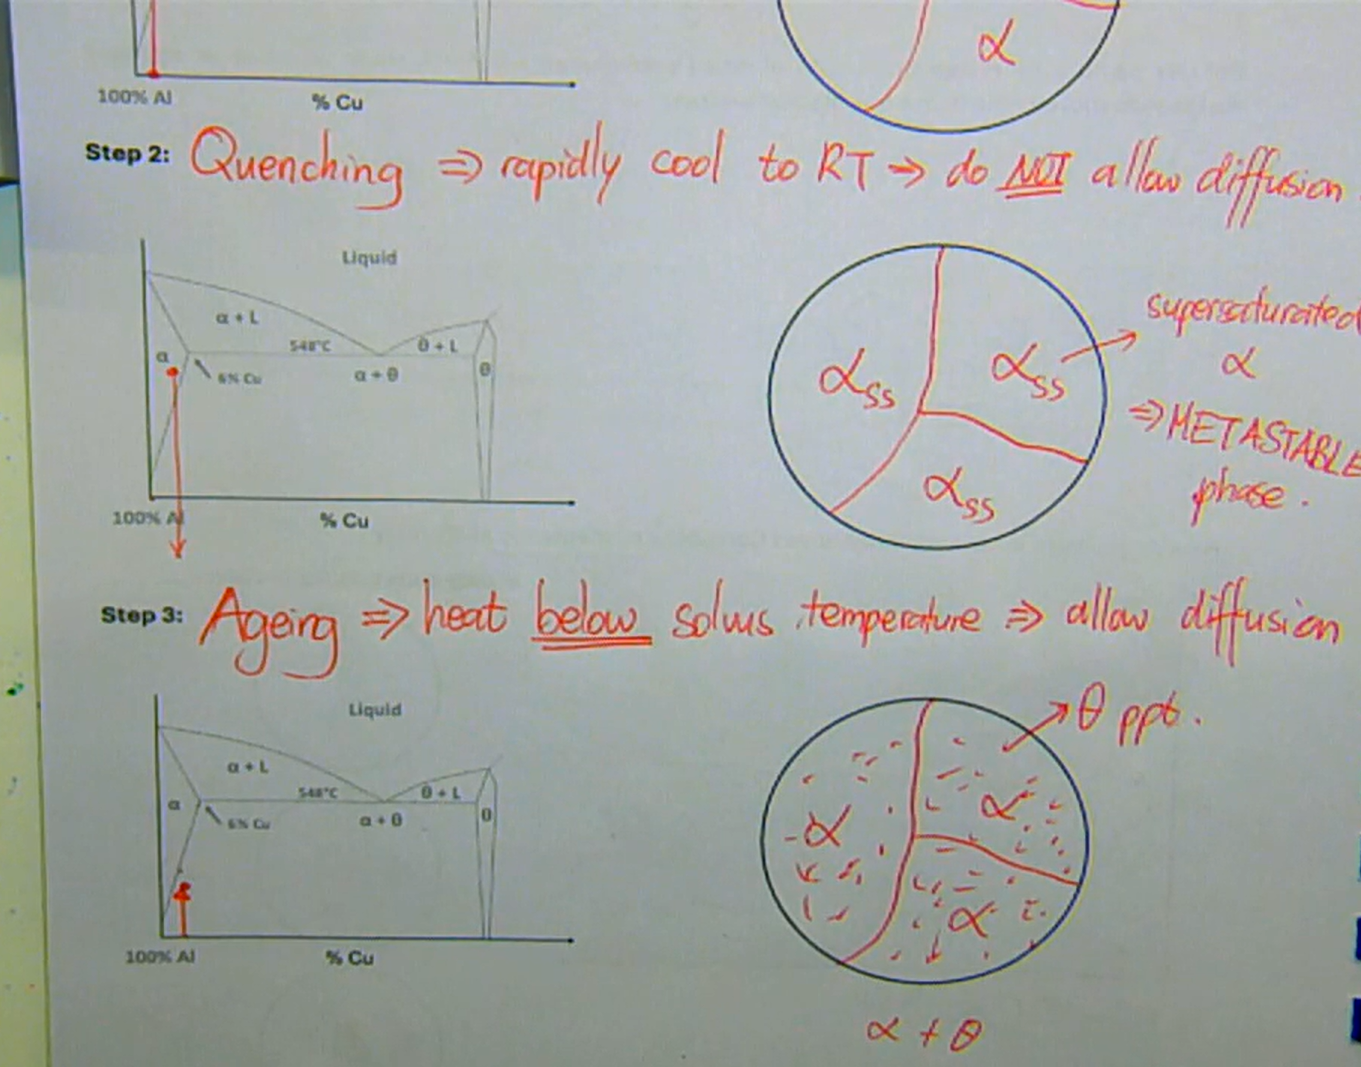 α
100% Al
% Cu
Step 2: Quenching ⇒ rapidly cool to RT → do NOT allow diffusion
Liquid
α + L
548°C
θ + L
α
6% Cu
α + θ
θ
100% Al
% Cu
αss
αss
αss
supersaturated
α
⇒ METASTABLE
phase.
Step 3: Ageing ⇒ heat below solvus temperature ⇒ allow diffusion
Liquid
α + L
548°C
θ + L
α
6% Cu
α + θ
θ
100% Al
% Cu
θ ppt.
α
α
α
α + θ